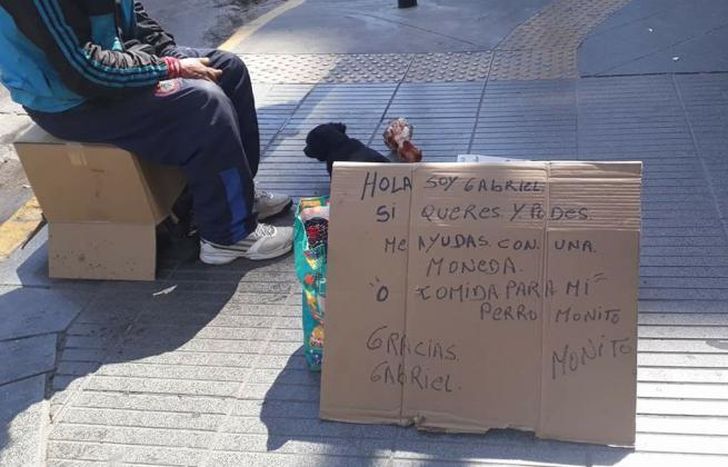 HOLA SOY GABRIEL
SI QUERES Y PODES.
ME AYUDAS CON UNA.
MONEDA.
"O COMIDA PARA MI"
PERRO MONITO
GRACIAS. MOÑITO
GABRIEL.